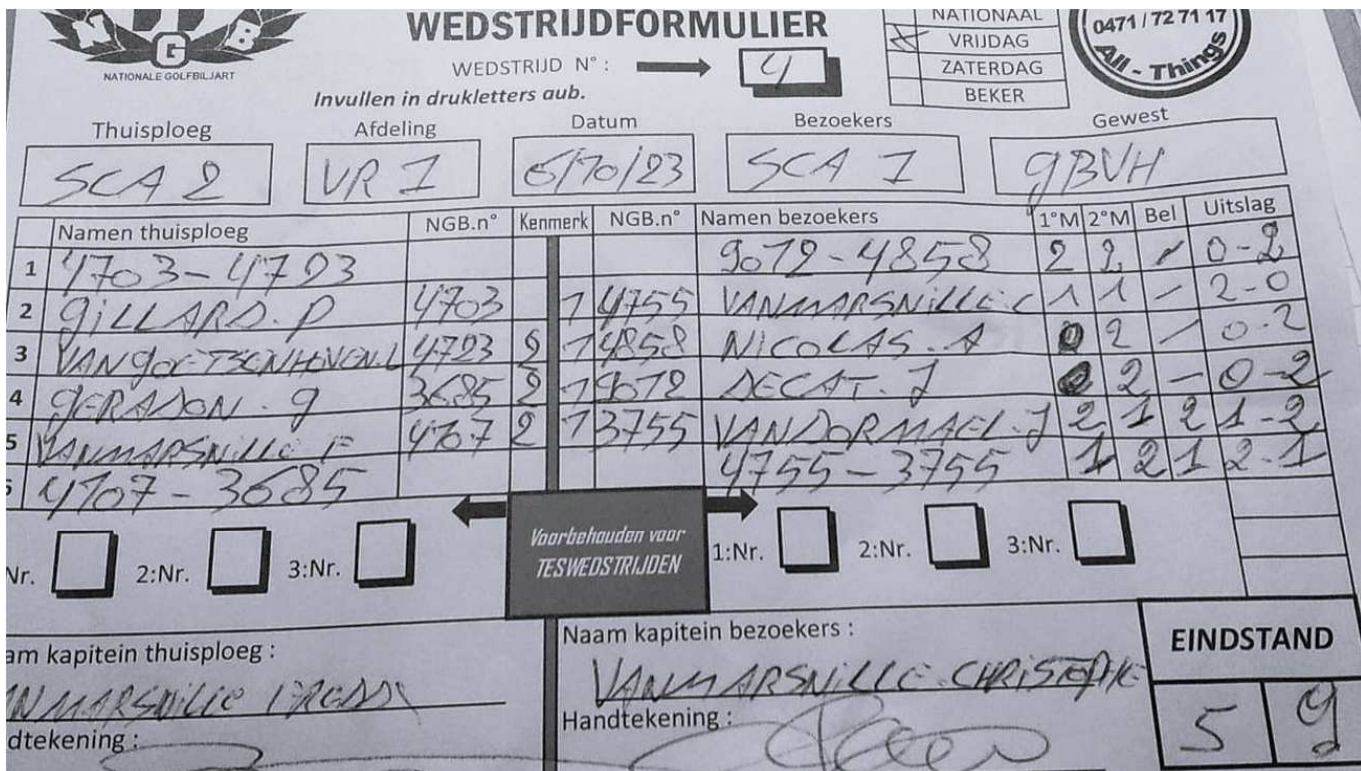 NGB
NATIONALE GOLFBILJART
WEDSTRIJDFORMULIER
WEDSTRIJD N° : 4
Invullen in drukletters aub.
NATIONAAL
X VRIJDAG
ZATERDAG
BEKER
0471 / 72 71 17
All - Things
Thuisploeg Afdeling Datum Bezoekers Gewest
SCA 2 VR 1 6/10/23 SCA 1 GBVH
Namen thuisploeg NGB.n° Kenmerk NGB.n° Namen bezoekers 1°M 2°M Bel Uitslag
1 4703-4723 9012-4858 2 2 / 0-2
2 GILLARD. P 4703 1 4755 VANMARSNILLE C 1 1 - 2-0
3 VANGOETSENHOVEN L 4723 2 1 4858 NICOLAS. A 2 - 0-2
4 GERADON. G 3685 2 1 9012 DECAT. J 2 - 0-2
5 VANMARSNILLE F 4707 2 1 3755 VANDORMAEL. J 2 1 2 1-2
4707-3685 4755-3755 1 2 1 2-1
Nr. 2:Nr. 3:Nr. Voorbehouden voor 1:Nr. 2:Nr. 3:Nr.
TESWEDSTRIJDEN
am kapitein thuisploeg : Naam kapitein bezoekers : EINDSTAND
VANMARSNILLE CHRISTOPHE
dtekening : Handtekening : 5 9